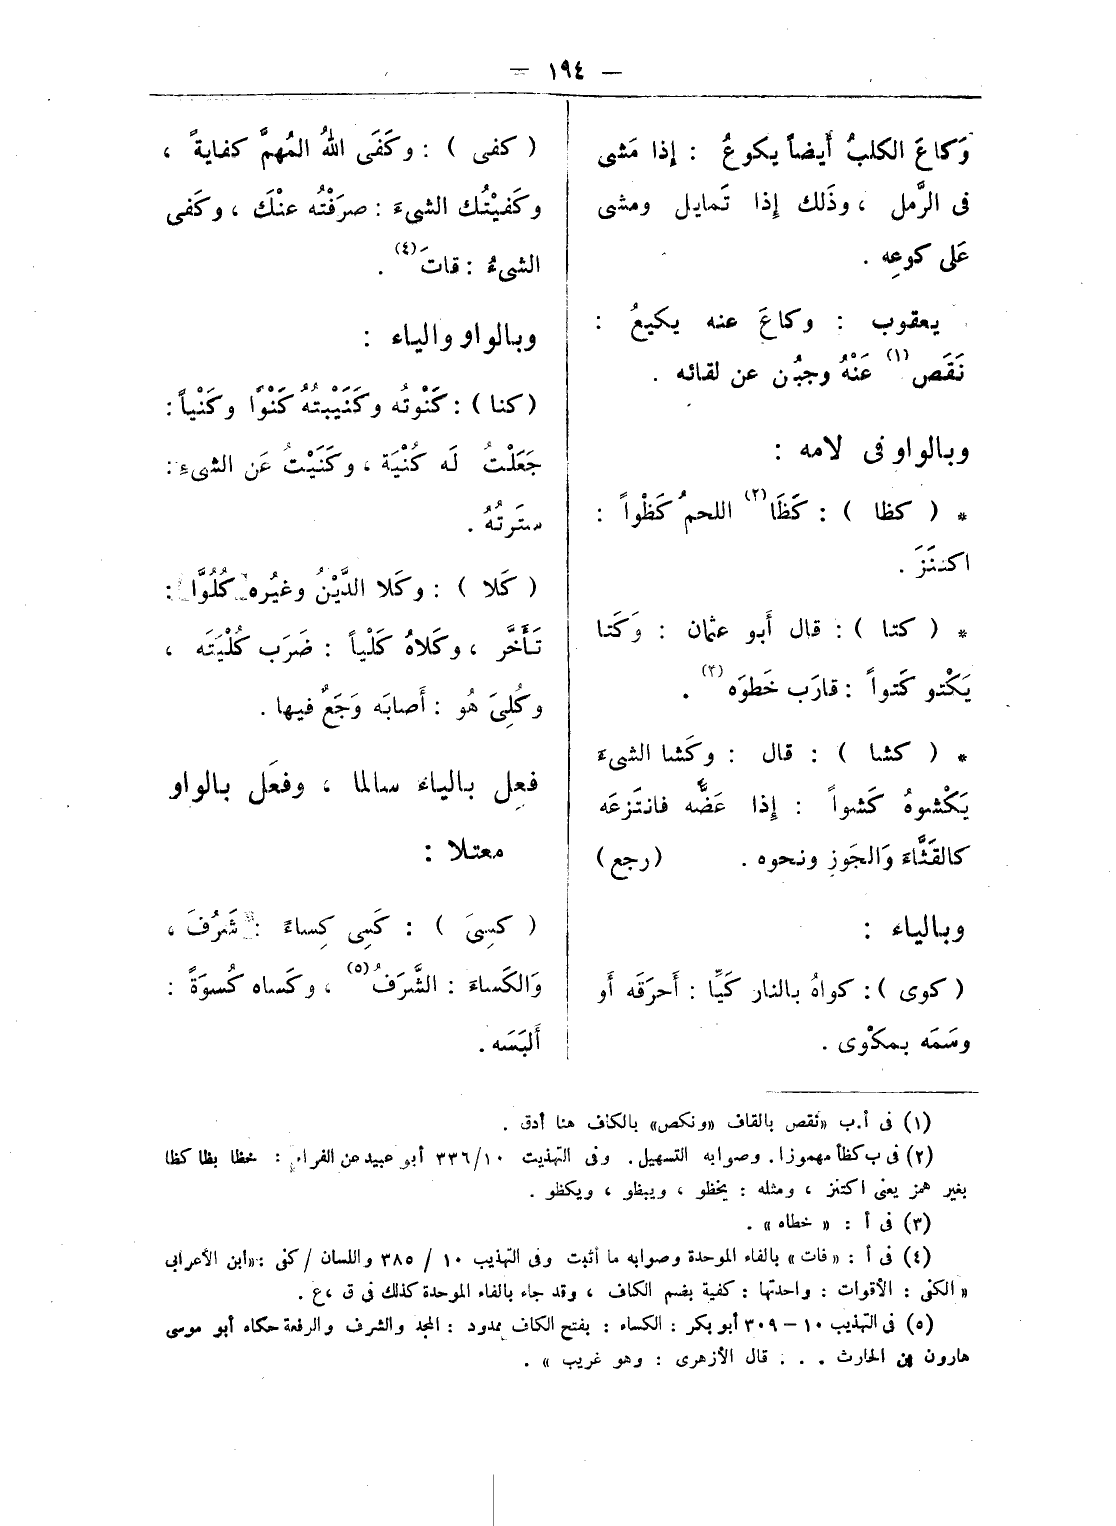 — ١٩٤ —
وَكاعَ الكلبُ أَيضاً يكوعُ : إذا مَشى
فى الرَّمل ، وذَلك إذا تَمايل ومشى
عَلى كوعِه .
يعقوب : وكاعَ عنه يكيعُ :
نَقَص (١) عَنْهُ وجبُن عن لقائه .
وبالواو فى لامه :
* ( كظا ) : كَظَا (٢) اللحمُ كَظْواً :
اكتنَزَ .
* ( كتا ) : قال أَبو عثمان : وَكَتا
يَكْتو كَتواً : قارَب خَطوَه (٣) .
* ( كشا ) : قال : وكَشا الشىءَ
يَكْشوهُ كَشواً : إذا عَضَّه فانتَزعَه
كالقَثَّاءَ وَالجَوزِ ونحوه . (رجع)
وبالياء :
( كوى ) : كواهُ بالنار كَيًّا : أَحرَقَه أَو
وسَمَه بمكْوى .
( كفى ) : وكَفَى اللهُ المُهمَّ كفايةً ،
وكَفيْتُك الشىءَ : صرَفْتُه عنْكَ ، وكَفى
الشىءُ : قاتَ (٤) .
وبالواو والياء :
( كنا ) : كَنْوتُه وكَنَيْبتُهُ كَنْوًا وكَنْياً :
جَعَلْتُ لَه كُنْيَة ، وكَنَيْتُ عَن الشىءِ :
سترتُهُ .
( كَلا ) : وكَلا الدَّيْنُ وغيُره كُلُوًّا :
تَأَخَّر ، وكَلاهُ كَلْياً : ضَرَب كُلْيَتَه ،
وكُلِىَ هُو : أَصابَه وَجَعٌ فيها .
فعِل بالياء سالما ، وفعَل بالواو
معتلا :
( كسِىَ ) : كَسِى كِساءً : شَرُفَ ،
وَالكَساءَ : الشَّرَفُ (٥) ، وكَساه كُسوَةً :
أَلبَسَه .
(١) فى أ.ب «نقص بالقاف «ونكص» بالكاف هنا أدق .
(٢) فى ب كظأ مهموزا . وصوابه التسهيل . وفى التهذيت ٣٣٦/١٠ أبو عبيد عن الفراء : خظا بظا كظا
بغير همز يعنى اكتنز ، ومثله : يخظو ، ويبظو ، ويكظو .
(٣) فى أ : « خطاه » .
(٤) فى أ : « فات » بالفاء الموحدة وصوابه ما أثبت وفى التهذيب ١٠ / ٣٨٥ واللسان / كفى : «ابن الأعرابى
« الكنى : الأقوات : واحدتها : كفية بضم الكاف ، وقد جاء بالفاء الموحدة كذلك فى ق ، ع .
(٥) فى التهذيب ١٠ – ٣٠٩ أبو بكر : الكساء : بفتح الكاف ممدود : المجد والشرف والرفعة حكاه أبو موسى
هارون بن الحارث . . . قال الأزهرى : وهو غريب » .